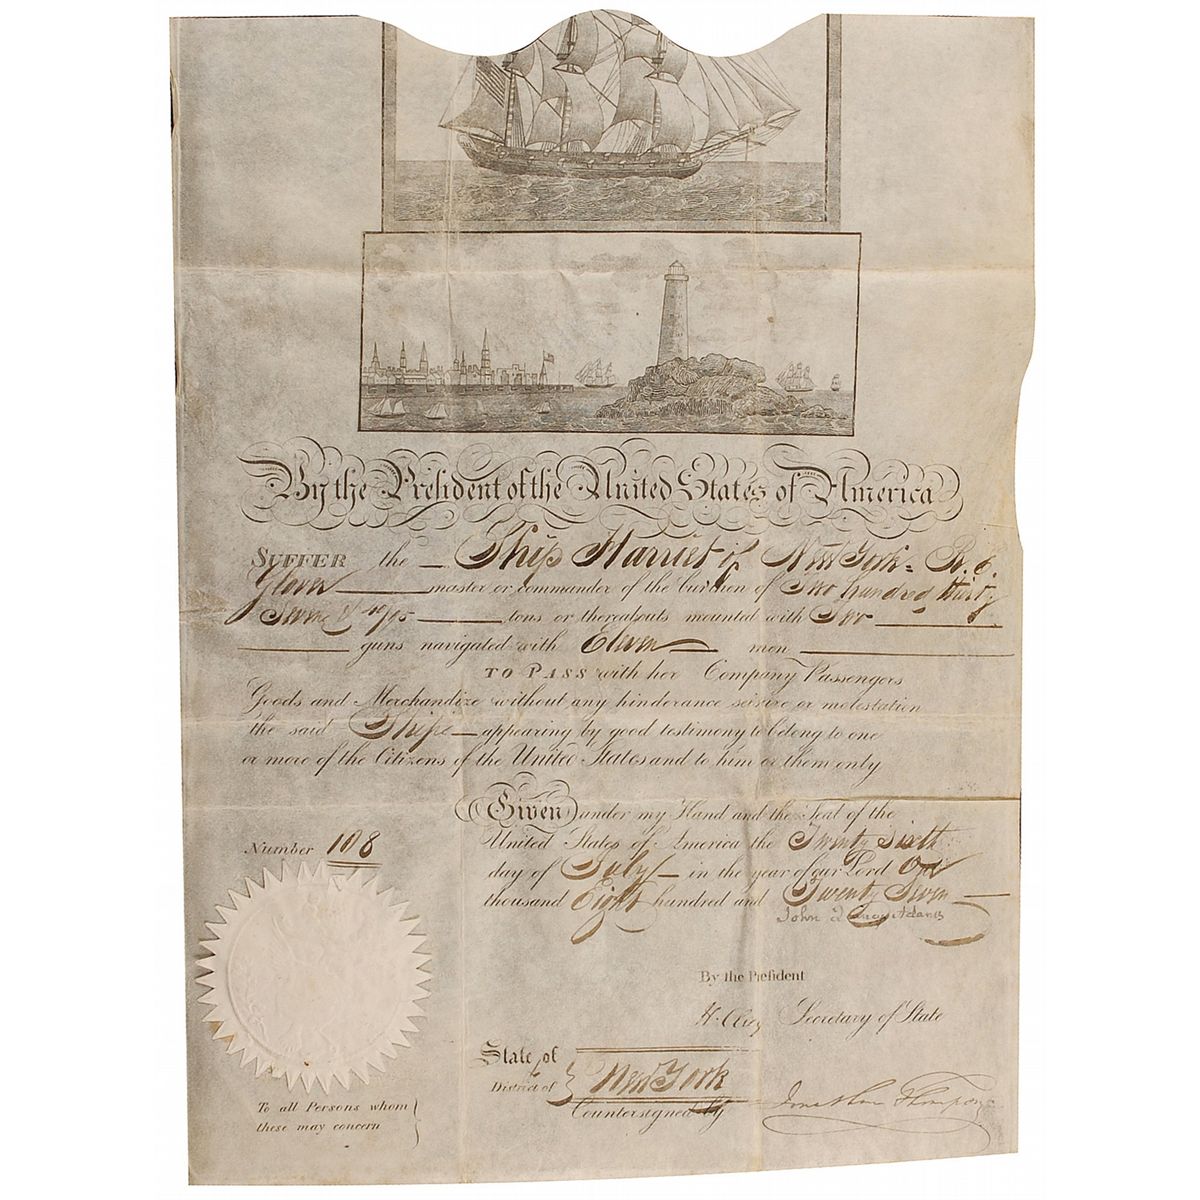 By the President of the United States of America
SUFFER the Ship Harriet of New York
master or commander of the burthen of Two hundred thirty
Seven & 40/95 tons or thereabouts mounted with Two
guns navigated with Eleven men
TO PASS with her Company Passengers
Goods and Merchandize without any hinderance seisure or molestation
the said Ship appearing by good testimony to belong to one
or more of the Citizens of the United States and to him or them only
Given under my Hand and the Seal of the
United States of America the Twenty Sixth
Number 108
day of July in the year of our Lord One
thousand Eight hundred and Twenty Seven
John Quincy Adams
By the President
H. Clay Secretary of State
State of
District of New York
Countersigned by Jonathan Thompson
To all Persons whom
these may concern